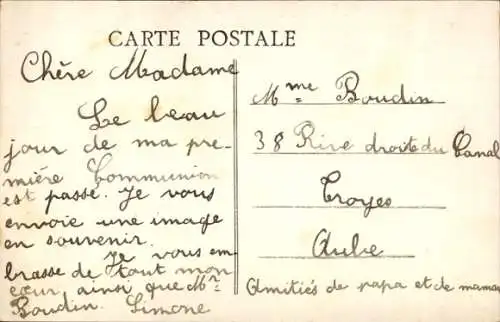 CARTE POSTALE
Chère Madame
Le beau
jour de ma pre-
mière Communion
est passé. Je vous
envoie une image
en souvenir.
Je vous em
brasse de tout mon
cœur, ainsi que Mr
Boudin. Simone
Mme Boudin
38 Rive droite du Canal
Troyes
Aube
Amitiés de papa et de maman